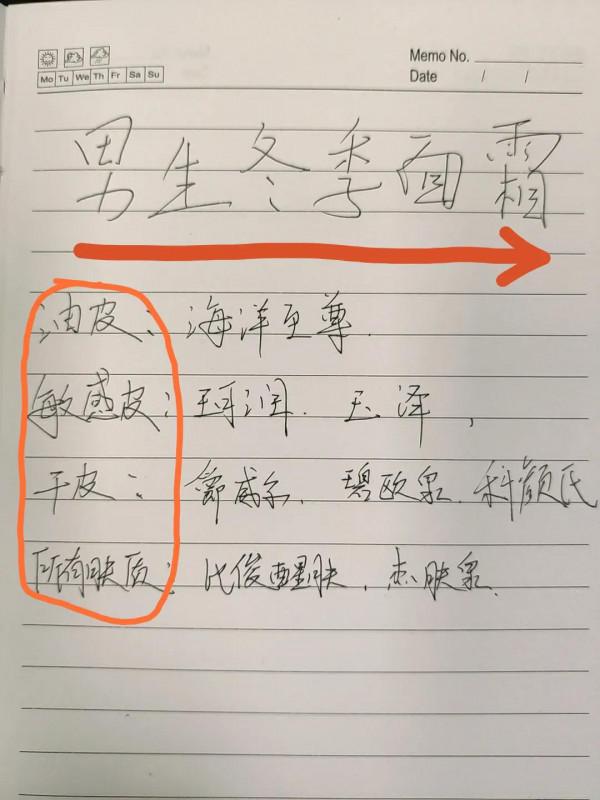 Memo No.
Mo Tu We Th Fr Sa Su
Date / /
男生冬季面霜
油皮：海洋至尊.
敏感皮：珂润. 玉泽，
干皮：舒威尔. 碧欧泉. 科颜氏
所有肤质：比俊醒肤. 杰肤泉.